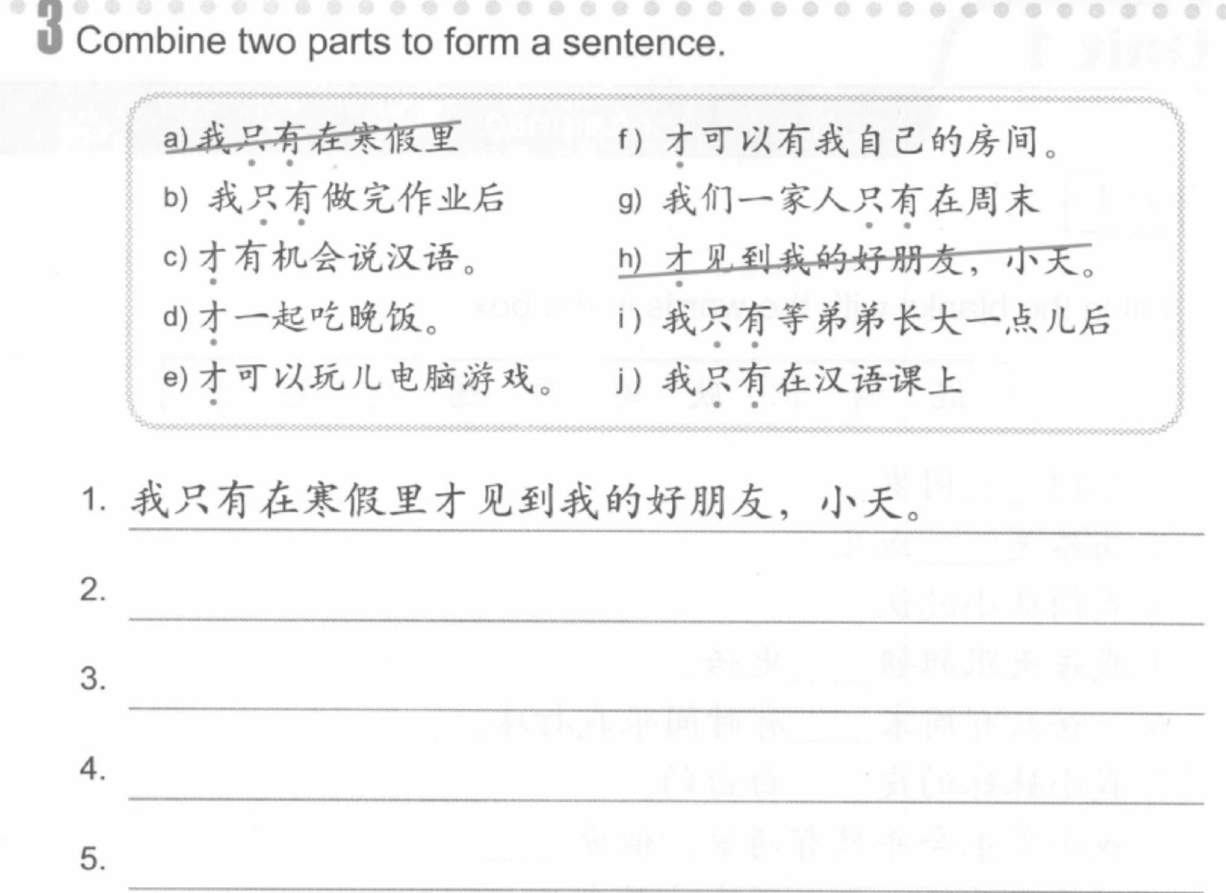 3 Combine two parts to form a sentence.
a) 我只有在寒假里
b) 我只有做完作业后
c) 才有机会说汉语。
d) 才一起吃晚饭。
e) 才可以玩儿电脑游戏。
f) 才可以有我自己的房间。
g) 我们一家人只有在周末
h) 才见到我的好朋友，小天。
i) 我只有等弟弟长大一点儿后
j) 我只有在汉语课上
1. 我只有在寒假里才见到我的好朋友，小天。
2.
3.
4.
5.